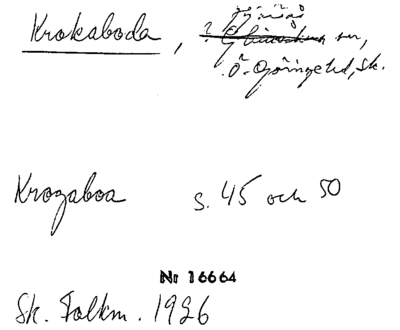 Krokaboda, sn,
Ö. Göinge hd, Sk.
Krogaboa s. 45 och 50
Nr 16664
Sk. Folkm. 1926